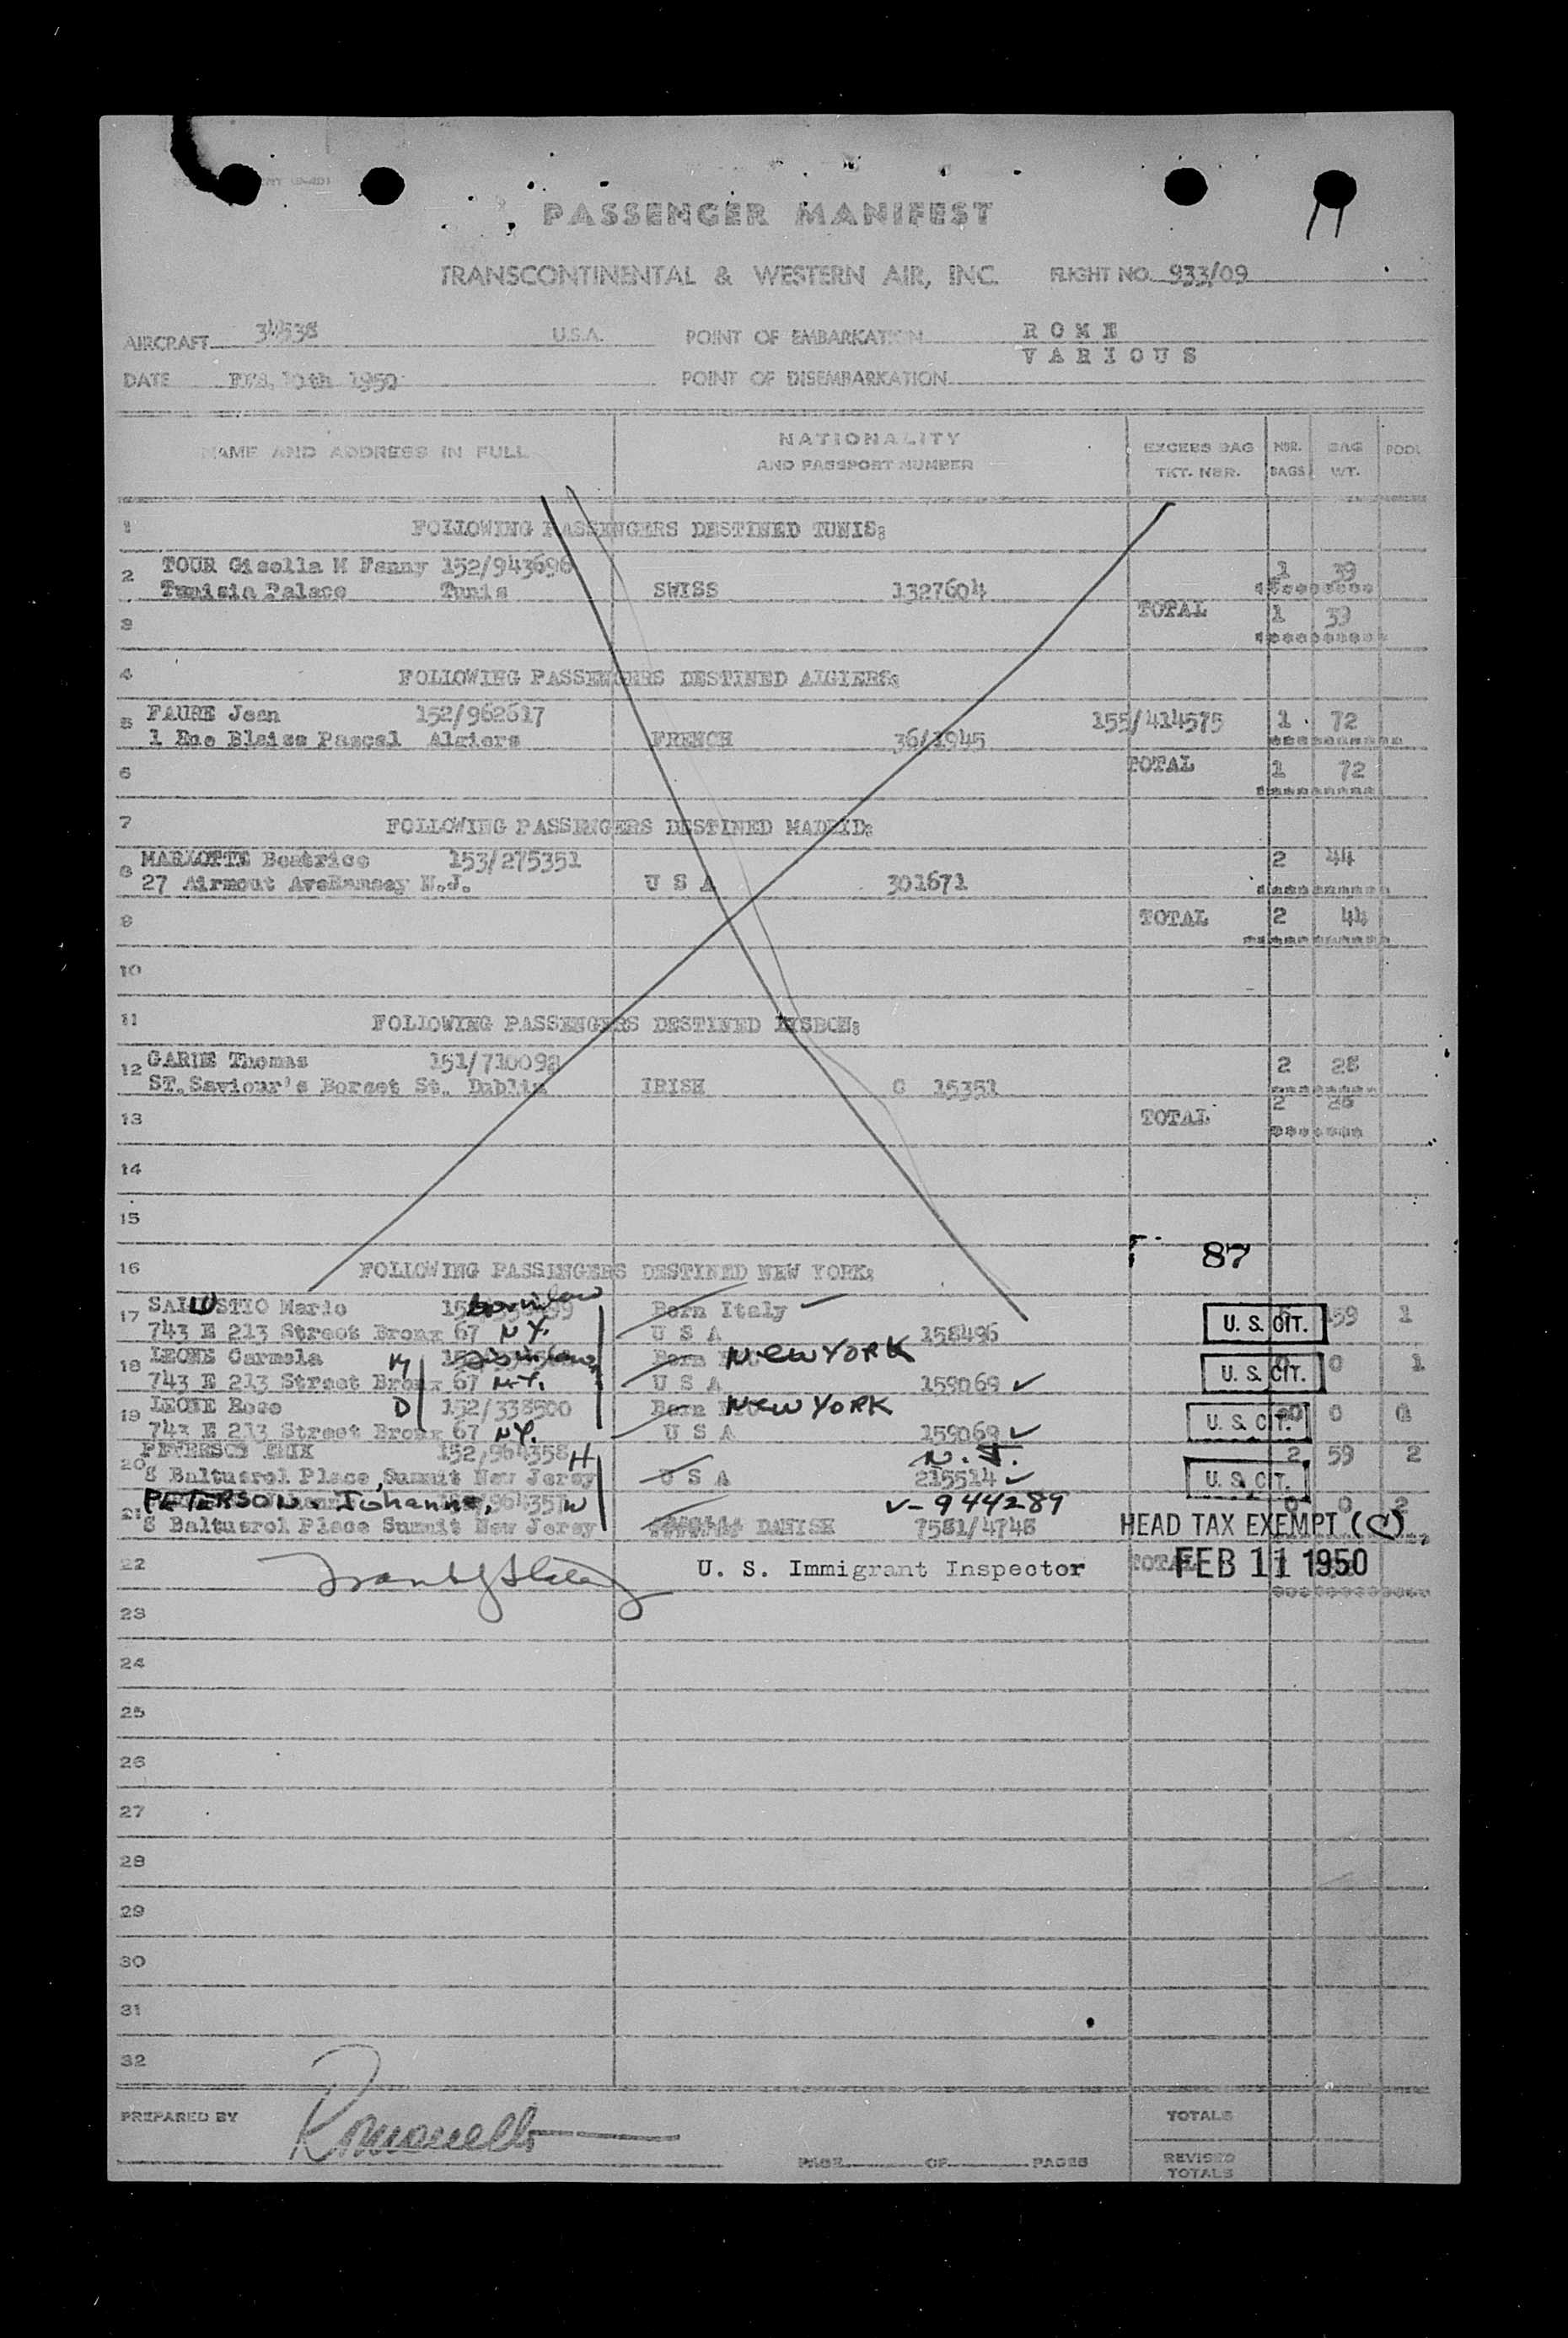 PASSENGER MANIFEST
TRANSCONTINENTAL & WESTERN AIR, INC. FLIGHT NO. 933/09
AIRCRAFT 34538 U.S.A. POINT OF EMBARKATION ROME
VARIOUS
DATE FEB, 10th 1950 POINT OF DISEMBARKATION
NAME AND ADDRESS IN FULL NATIONALITY AND PASSPORT NUMBER EXCESS BAG TKT. NBR. NBR. BAGS BAG WT. POOL
1 FOLLOWING PASSENGERS DESTINED TUNIS:
2 TOUR Gisella M Fanny 152/943696 1 39
Tunisia Palace Tunis SWISS 1327604 **********
3 TOTAL 1 39
4 FOLLOWING PASSENGERS DESTINED ALGIERS:
5 FAURE Jean 152/962617 155/414575 1 72
1 Rue Blaise Pascal Algiers FRENCH 36/1945
6 TOTAL 1 72
7 FOLLOWING PASSENGERS DESTINED MADRID:
8 MARZOTTE Beatrice 153/275351 2 44
27 Airmout AveRamsey N.J. U S A 301671
9 TOTAL 2 44
10
11 FOLLOWING PASSENGERS DESTINED LISBON:
12 GARDE Thomas 151/710092 2 26
ST.Saviour's Dorset St. Dublin IRISH C 15351
13 TOTAL 2 26
14
15
87
16 FOLLOWING PASSENGERS DESTINED NEW YORK:
17 SALLUSTIO Mario Born Italy 159 1
743 E 213 Street Bronx 67 N.Y. U S A 158496 U. S. CIT.
18 LEONE Carmela M Born NEW YORK 0 1
743 E 213 Street Bronx 67 N.Y. U S A 159069 U. S. CIT.
19 LEONE Rose D 152/338500 Born NEW YORK 0 0
743 E 213 Street Bronx 67 N.Y. U S A 159069 U. S. CIT.
20 PETERSON 152/964358 H N. J. 2 59 2
8 Baltusrol Place, Summit New Jersy U S A 215514 U. S. CIT.
21 PETERSON, Johanne, W V-944289 0 0 2
8 Baltusrol Place Summit New Jersy DANISH 7581/4748 HEAD TAX EXEMPT (C)
22 U. S. Immigrant Inspector TOTAL FEB 11 1950
23
24
25
26
27
28
29
30
31
32
PREPARED BY Romanelli TOTALS
PAGE OF PAGES REVISED TOTALS